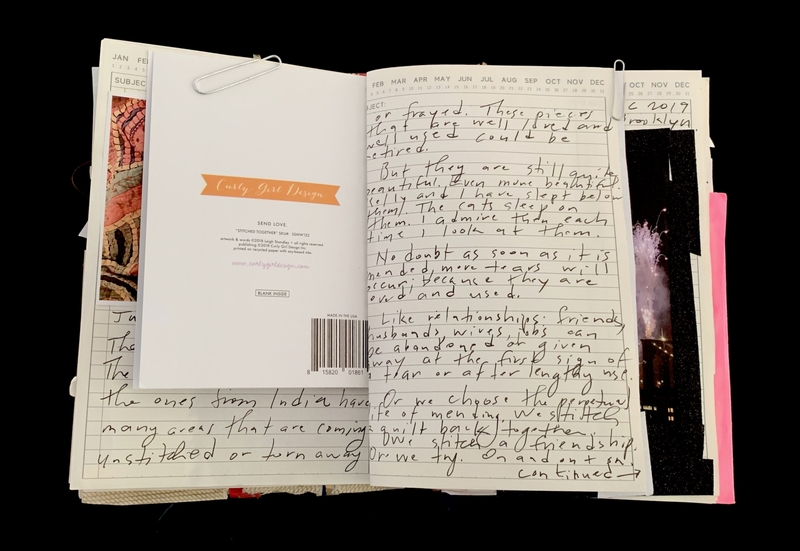 JAN FE
SUBJEC
Ju
Tha
The
the ones from India have
many areas that are coming
unstitched or torn away
Curly Girl Design
SEND LOVE
"STITCHED TOGETHER"
artwork & words ©2018 Leigh Standley • all rights reserved
publishing ©2018 Curly Girl Design Inc
printed on recycled paper with soy-based inks
www.curlygirldesign.com
BLANK INSIDE
MADE IN THE USA
8 15820 01861
FEB MAR APR MAY JUN JUL AUG SEP OCT NOV DEC
JECT:
or frayed. These pieces
that are well loved and
well used could be
retired.
But they are still quite
beautiful. Even more beautiful.
lly and I have slept below
them. The cats sleep on
them. I admire them each
time I look at them.
No doubt as soon as it is
mended, more tears will
occur, because they are
loved and used.
Like relationships: friends,
husbands, wives, jobs can
be abandoned or given
away at the first sign of
a tear or after lengthy use.
Or we choose the perpetual
life of mending. We stitch
a quilt back together.
We stitch a friendship.
Or we try. On and on + on.
continued →
OCT NOV DEC
C 2019
Brooklyn